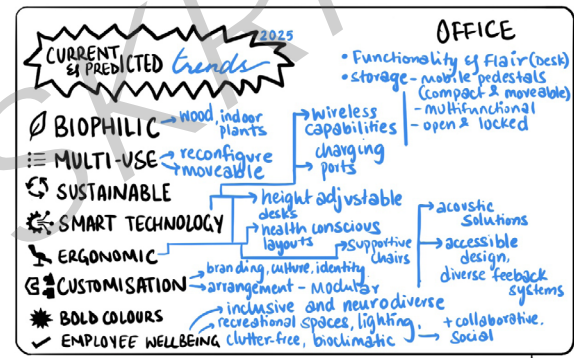 2025
CURRENT & PREDICTED trends
OFFICE
• Functionality & Flair (Desk)
• storage - mobile pedestals
(compact & moveable)
- multifunctional
- open & locked
BIOPHILIC → wood, indoor
plants
MULTI-USE → reconfigure
→ moveable
SUSTAINABLE
SMART TECHNOLOGY
→ wireless
capabilities
→ charging
ports
ERGONOMIC
→ height adjustable
desks
→ health conscious
layouts
→ supportive
chairs
→ acoustic
solutions
→ accessible
design,
diverse feeback
systems
CUSTOMISATION → branding, culture, identity
→ arrangement - modular
BOLD COLOURS
EMPLOYEE WELLBEING
→ inclusive and neurodiverse
→ recreational spaces, lighting,
clutter-free, bioclimatic
→ + collaborative.
social